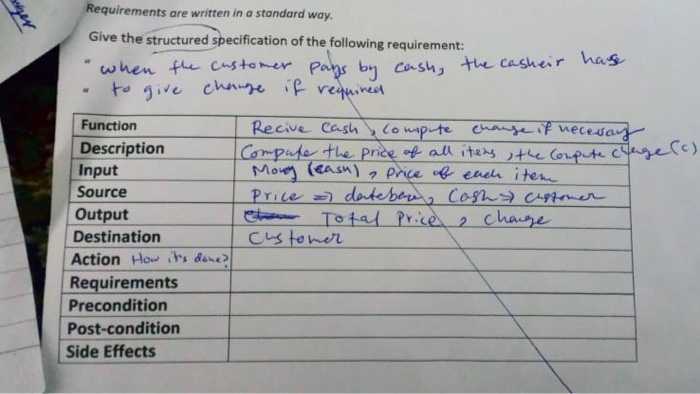 Requirements are written in a standard way.
Give the structured specification of the following requirement:
" when the customer pays by cash, the casheir have
" to give change if required
Function Recive Cash, compute change if necessary
Description Compute the price of all items, the compute change (c)
Input Money (cash), price of each item
Source Price => database, Cash => customer
Output Total Price, change
Destination Customer
Action How it's done?
Requirements
Precondition
Post-condition
Side Effects